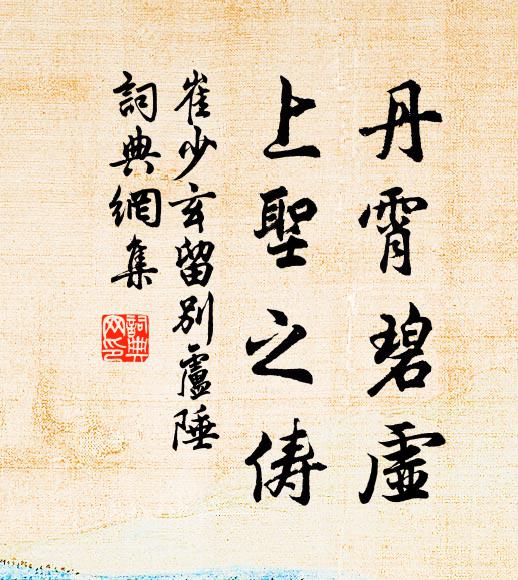 丹霄碧虛
上聖之儔
崔少玄留別盧陲
詞典網集
詞典
网印